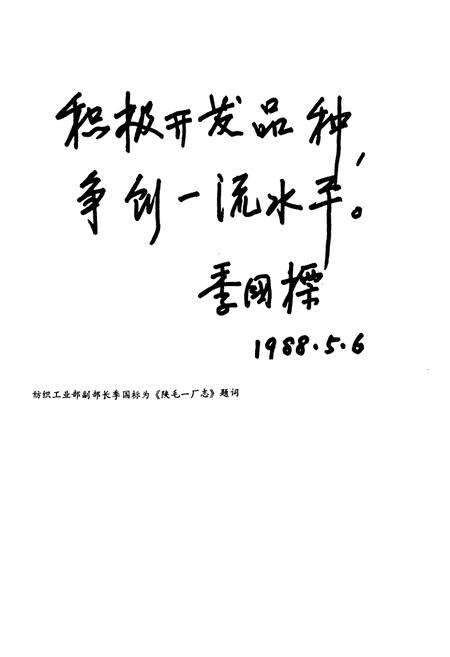 积极开发品种，
争创一流水平。
季国标
1988.5.6
纺织工业部副部长季国标为《陕毛一厂志》题词